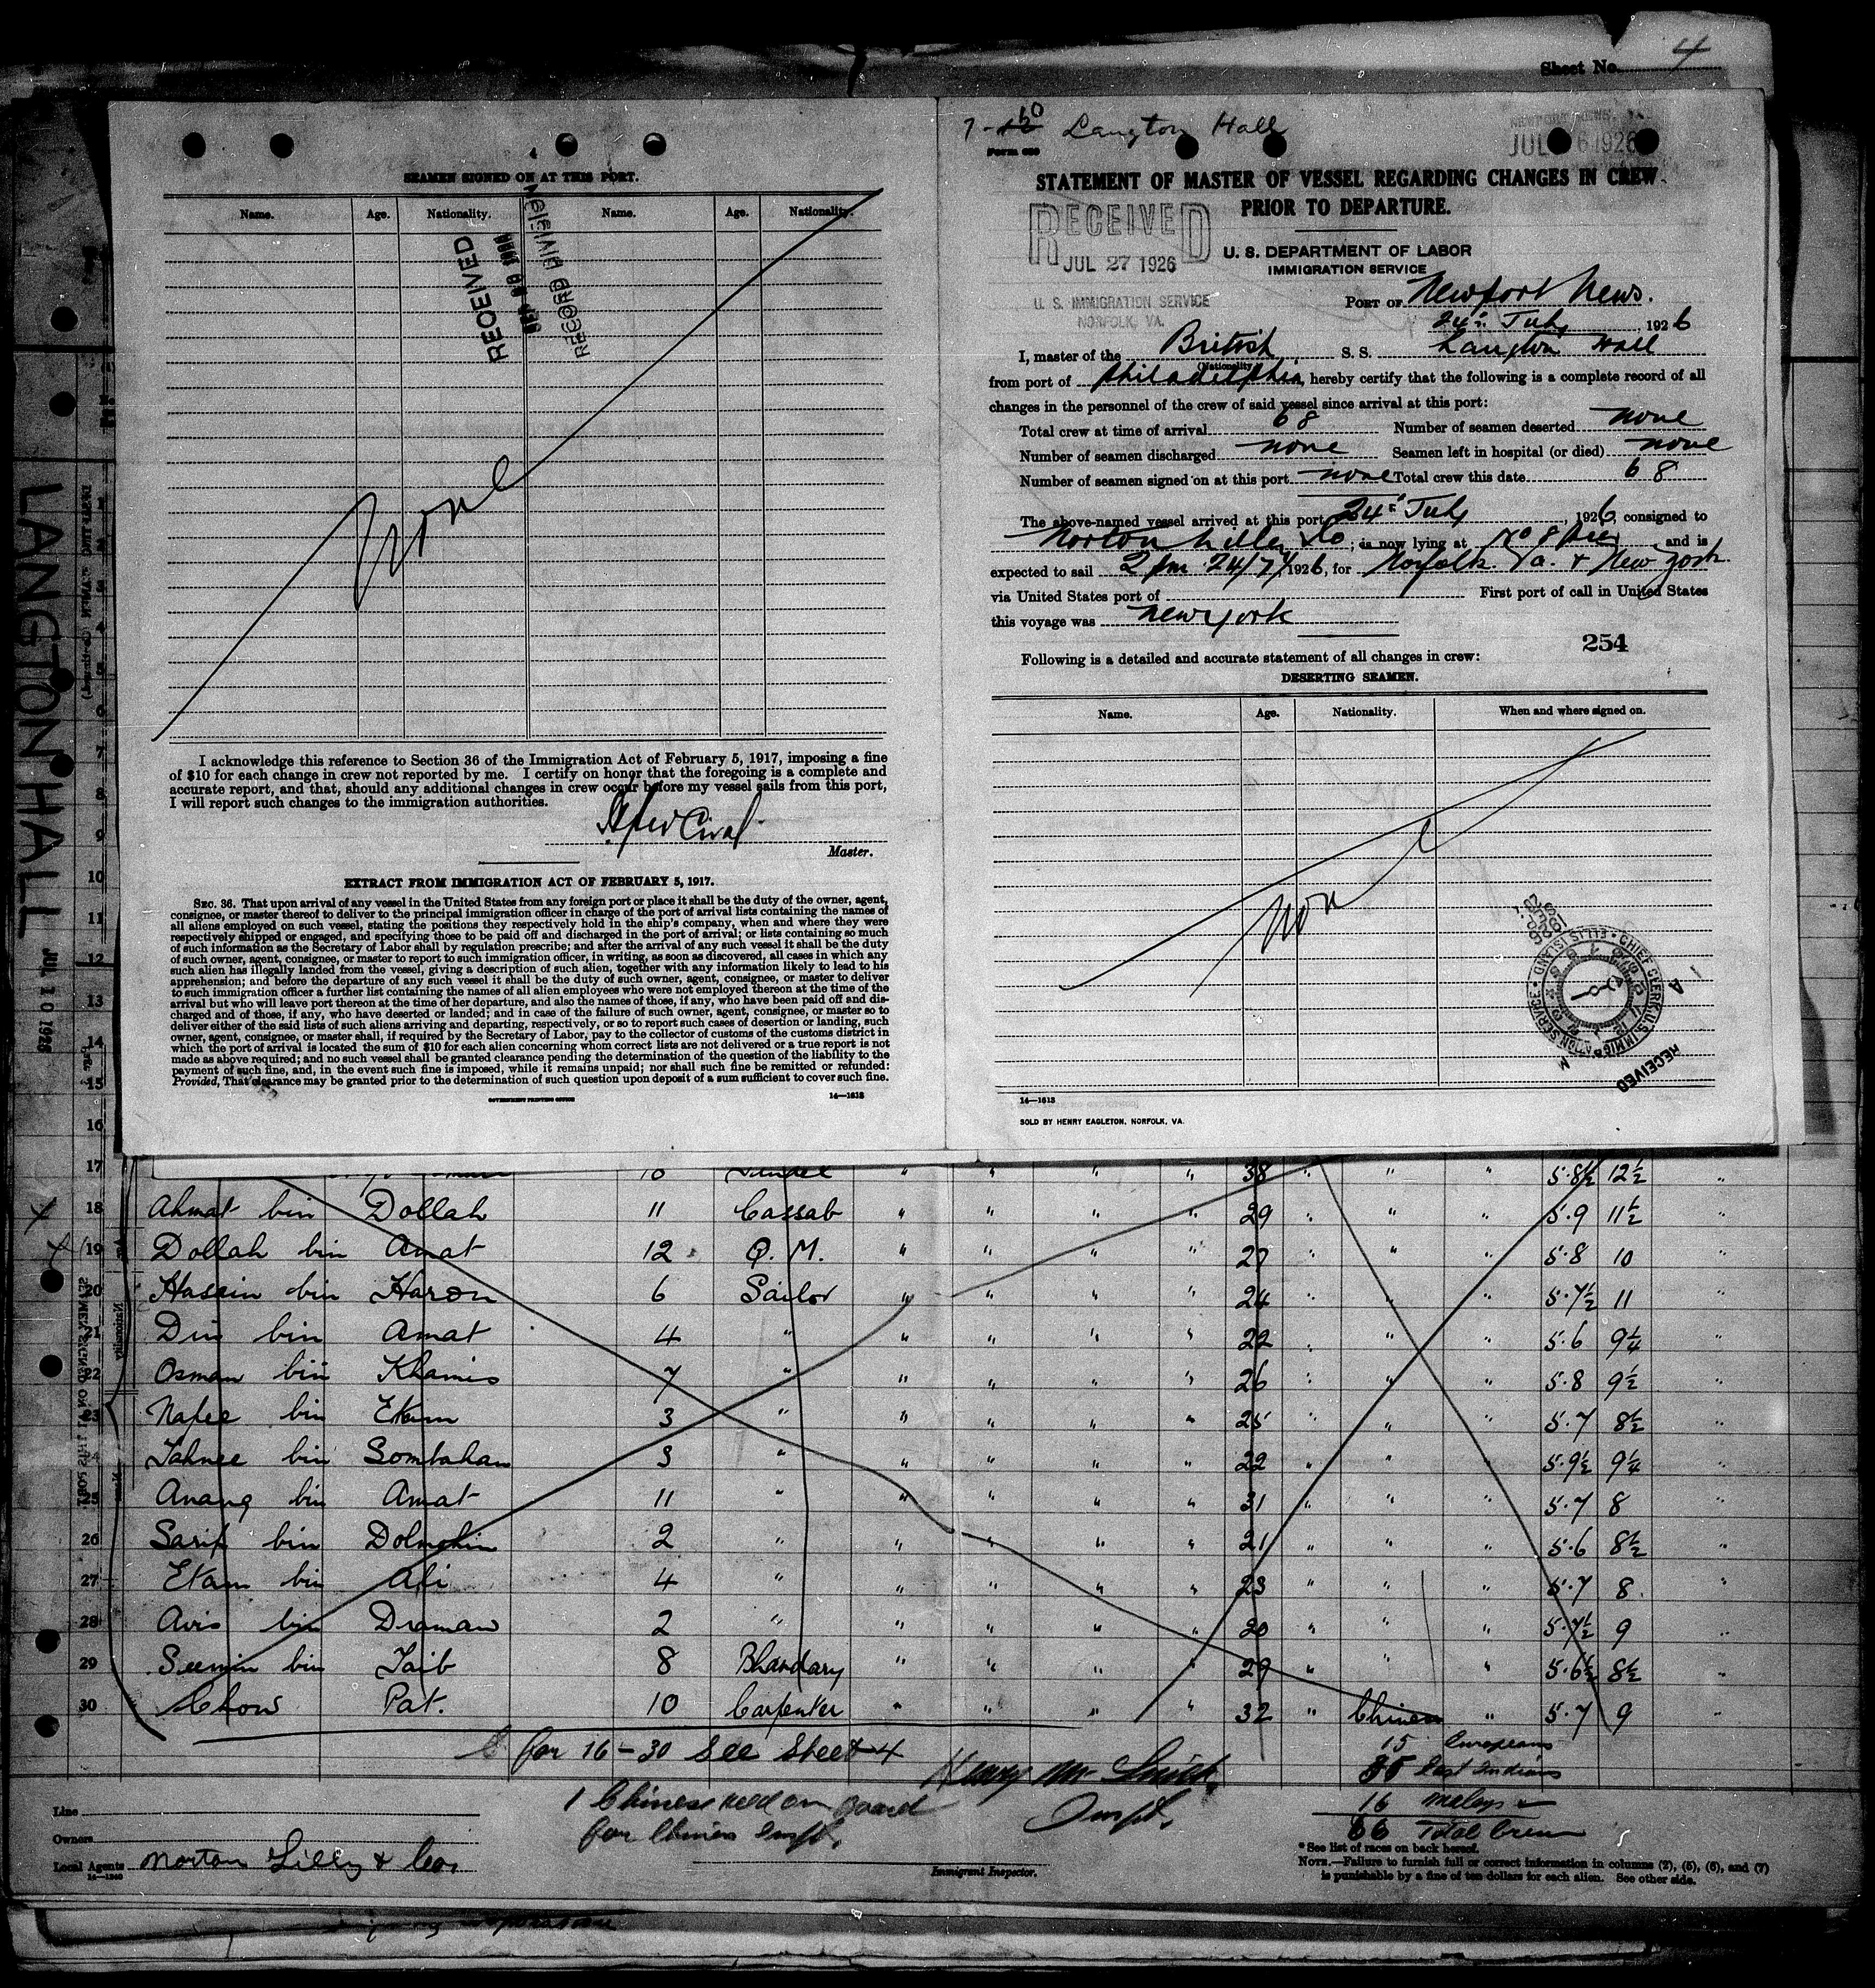 Sheet No. 4
SEAMEN SIGNED ON AT THIS PORT.
Name. Age. Nationality. Name. Age. Nationality.
RECEIVED
RECORD DIVISION
None
I acknowledge this reference to Section 36 of the Immigration Act of February 5, 1917, imposing a fine
of $10 for each change in crew not reported by me. I certify on honor that the foregoing is a complete and
accurate report, and that, should any additional changes in crew occur before my vessel sails from this port,
I will report such changes to the immigration authorities.
Master.
EXTRACT FROM IMMIGRATION ACT OF FEBRUARY 5, 1917.
SEC. 36. That upon arrival of any vessel in the United States from any foreign port or place it shall be the duty of the owner, agent,
consignee, or master thereof to deliver to the principal immigration officer in charge of the port of arrival lists containing the names of
all aliens employed on such vessel, stating the positions they respectively hold in the ship's company, when and where they were
respectively shipped or engaged, and specifying those to be paid off and discharged in the port of arrival; or lists containing so much
of such information as the Secretary of Labor shall by regulation prescribe; and after the arrival of any such vessel it shall be the duty
of such owner, agent, consignee, or master to report to such immigration officer, in writing, as soon as discovered, all cases in which any
such alien has illegally landed from the vessel, giving a description of such alien, together with any information likely to lead to his
apprehension; and before the departure of any such vessel it shall be the duty of such owner, agent, consignee, or master to deliver
to such immigration officer a further list containing the names of all alien employees who were not employed thereon at the time of the
arrival but who will leave port thereon at the time of her departure, and also the names of those, if any, who have been paid off and dis-
charged and of those, if any, who have deserted or landed; and in case of the failure of such owner, agent, consignee, or master so to
deliver either of the said lists of such aliens arriving and departing, respectively, or so to report such cases of desertion or landing, such
owner, agent, consignee, or master shall, if required by the Secretary of Labor, pay to the collector of customs of the customs district in
which the port of arrival is located the sum of $10 for each alien concerning whom correct lists are not delivered or a true report is not
made as above required; and no such vessel shall be granted clearance pending the determination of the question of the liability to the
payment of such fine, and, in the event such fine is imposed, while it remains unpaid; nor shall such fine be remitted or refunded:
Provided, That clearance may be granted prior to the determination of such question upon deposit of a sum sufficient to cover such fine.
GOVERNMENT PRINTING OFFICE 14—1613
Langton Hall
Form 680
NEWPORT NEWS, VA.
JUL 6 1926
STATEMENT OF MASTER OF VESSEL REGARDING CHANGES IN CREW
PRIOR TO DEPARTURE.
RECEIVED
JUL 27 1926
U. S. IMMIGRATION SERVICE
NORFOLK, VA.
U. S. DEPARTMENT OF LABOR
IMMIGRATION SERVICE
PORT OF Newport News.
24th July, 1926
I, master of the British S. S. Langton Hall
(Nationality)
from port of Philadelphia, hereby certify that the following is a complete record of all
changes in the personnel of the crew of said vessel since arrival at this port:
Total crew at time of arrival 68 Number of seamen deserted none
Number of seamen discharged none Seamen left in hospital (or died) none
Number of seamen signed on at this port none Total crew this date 68
The above-named vessel arrived at this port 24th July, 1926, consigned to
Norton Lilly & Co; is now lying at No 8 Pier and is
expected to sail 2 pm 24/7/1926, for Norfolk Va. & New York
via United States port of First port of call in United States
this voyage was New York
254
Following is a detailed and accurate statement of all changes in crew:
DESERTING SEAMEN.
Name. Age. Nationality. When and where signed on.
CHIEF CLERK U.S. IMMIGRATION SERVICE • ELLIS ISLAND •
RECEIVED
14—1613
SOLD BY HENRY EAGLETON, NORFOLK, VA.
LANGTON HALL
JUL 10 1926
SEAMEN SIGNED ON AT THIS PORT.
17 10 " " " " 38 " " " 5.8½ 12½ "
18 Ahmat bin Dollah 11 Cassab " " " " 29 " " " 5.9 11½ "
19 Dollah bin Amat 12 Q. M. " " " " 27 " " " 5.8 10 "
20 Hassin bin Haron 6 Sailor " " " " 24 " " " 5.7½ 11 "
21 Din bin Amat 4 " " " " " 22 " " " 5.6 9¼ "
22 Osman bin Khamis 7 " " " " " 26 " " " 5.8 9½ "
23 Napee bin Ekam 3 " " " " " 25 " " " 5.7 8½ "
24 Jahnee bin Sombahan 3 " " " " " 22 " " " 5.9½ 9¼ "
25 Anang bin Amat 11 " " " " " 31 " " " 5.7 8 "
26 Sarip bin Dolmohin 2 " " " " " 21 " " " 5.6 8½ "
27 Ekam bin Ali 4 " " " " " 23 " " " 5.7 8 "
28 Avis bin Draman 2 " " " " " 20 " " " 5.7½ 9 "
29 Seemin bin Taib 8 Bhandary " " " " 29 " " " 5.6½ 8½ "
30 Chow Pat. 10 Carpenter " " " " 32 " Chinese " 5.7 9 "
for 16-30 See Sheet 4
Henry M Smith
Insp.
1 Chinese held on board
for Chinese Insp.
15 Europeans
35 East Indians
16 Malays
66 Total Crew
Line
Owners
Local Agents Norton Lilly & Co.
14—1240
Immigrant Inspector.
* See list of races on back hereof.
NOTE.—Failure to furnish full or correct information in columns (2), (5), (6), and (7)
is punishable by a fine of ten dollars for each alien. See other side.